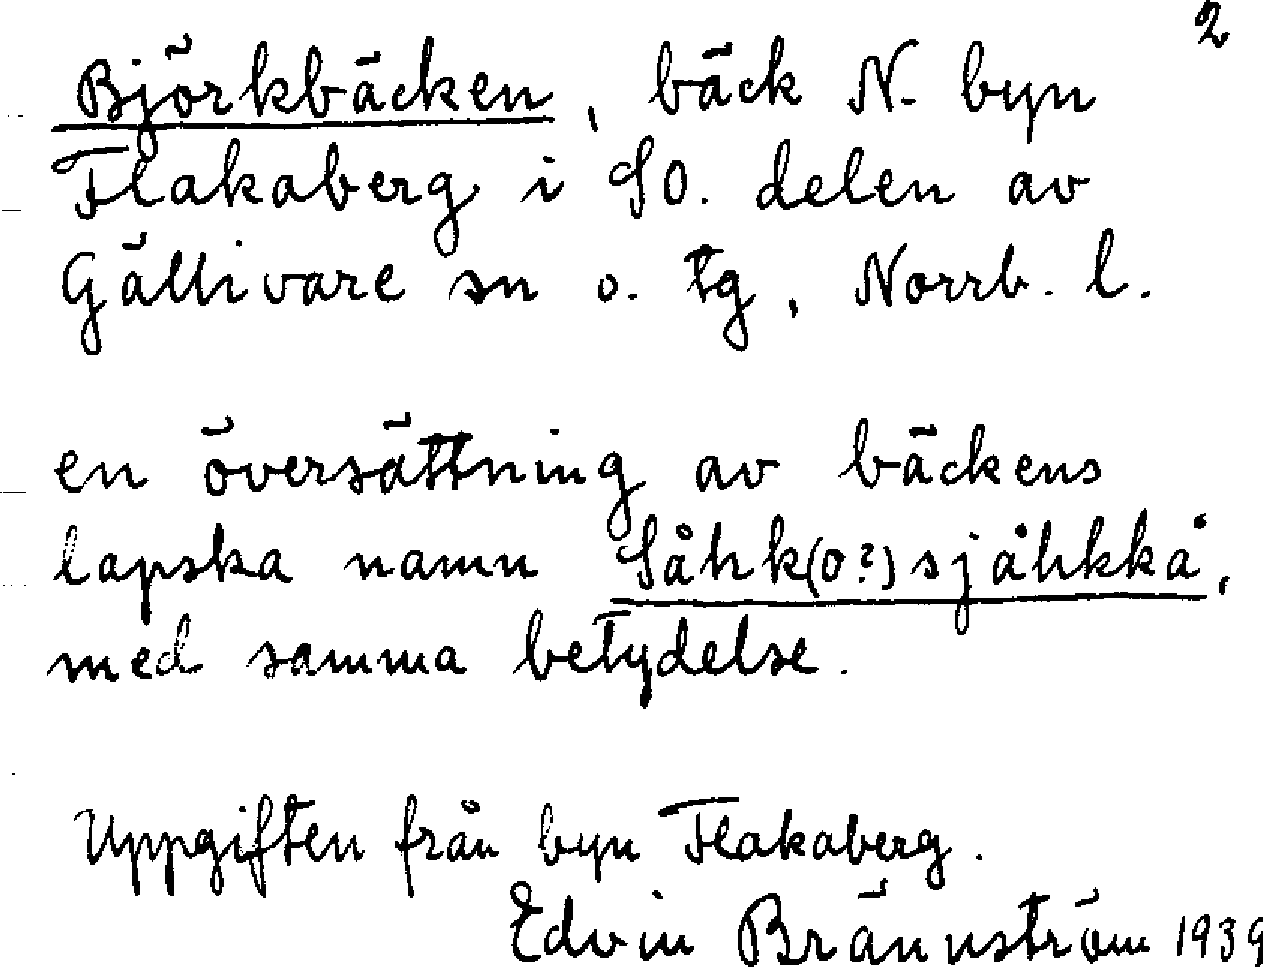 2
Björkbäcken, bäck N. byn
Flakaberg i SO. delen av
Gällivare sn o. tg, Norrb. l.
en översättning av bäckens
lapska namn Såhk(o?)sjåhkkå,
med samma betydelse.
Uppgiften från byn Flakaberg.
Edvin Brännström 1939